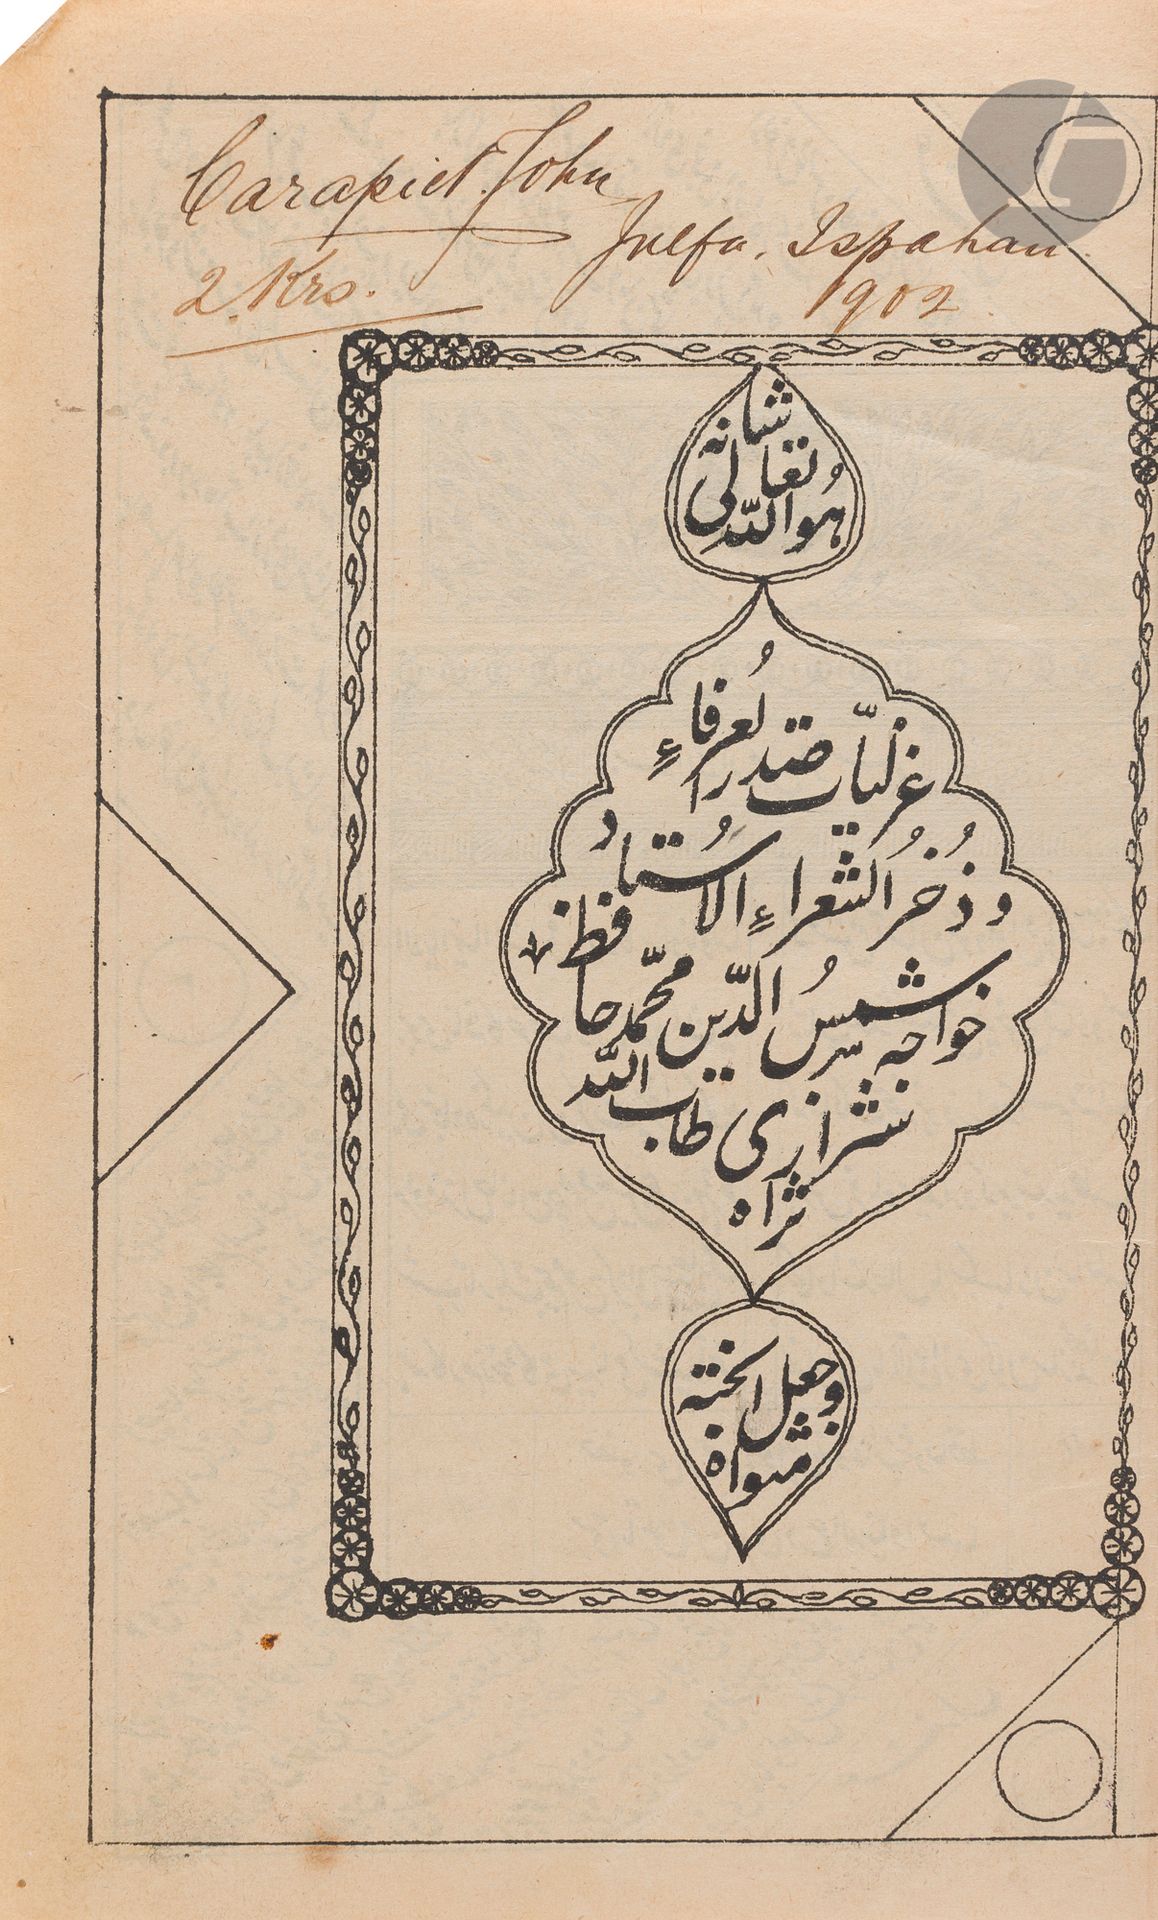 Carapiet John
Julfa, Ispahan
2 Krs.
1902
هُوَ اللّه تعالی شانه
غزلیّات صَدرُ العرفاءِ
وذُخرُ الشعراءِ الاُستاد
خواجه شمسُ الدّین محمّد حافظ
شیرازی طاب اللّه
ثراه
وجعل الجنّة
مثواه